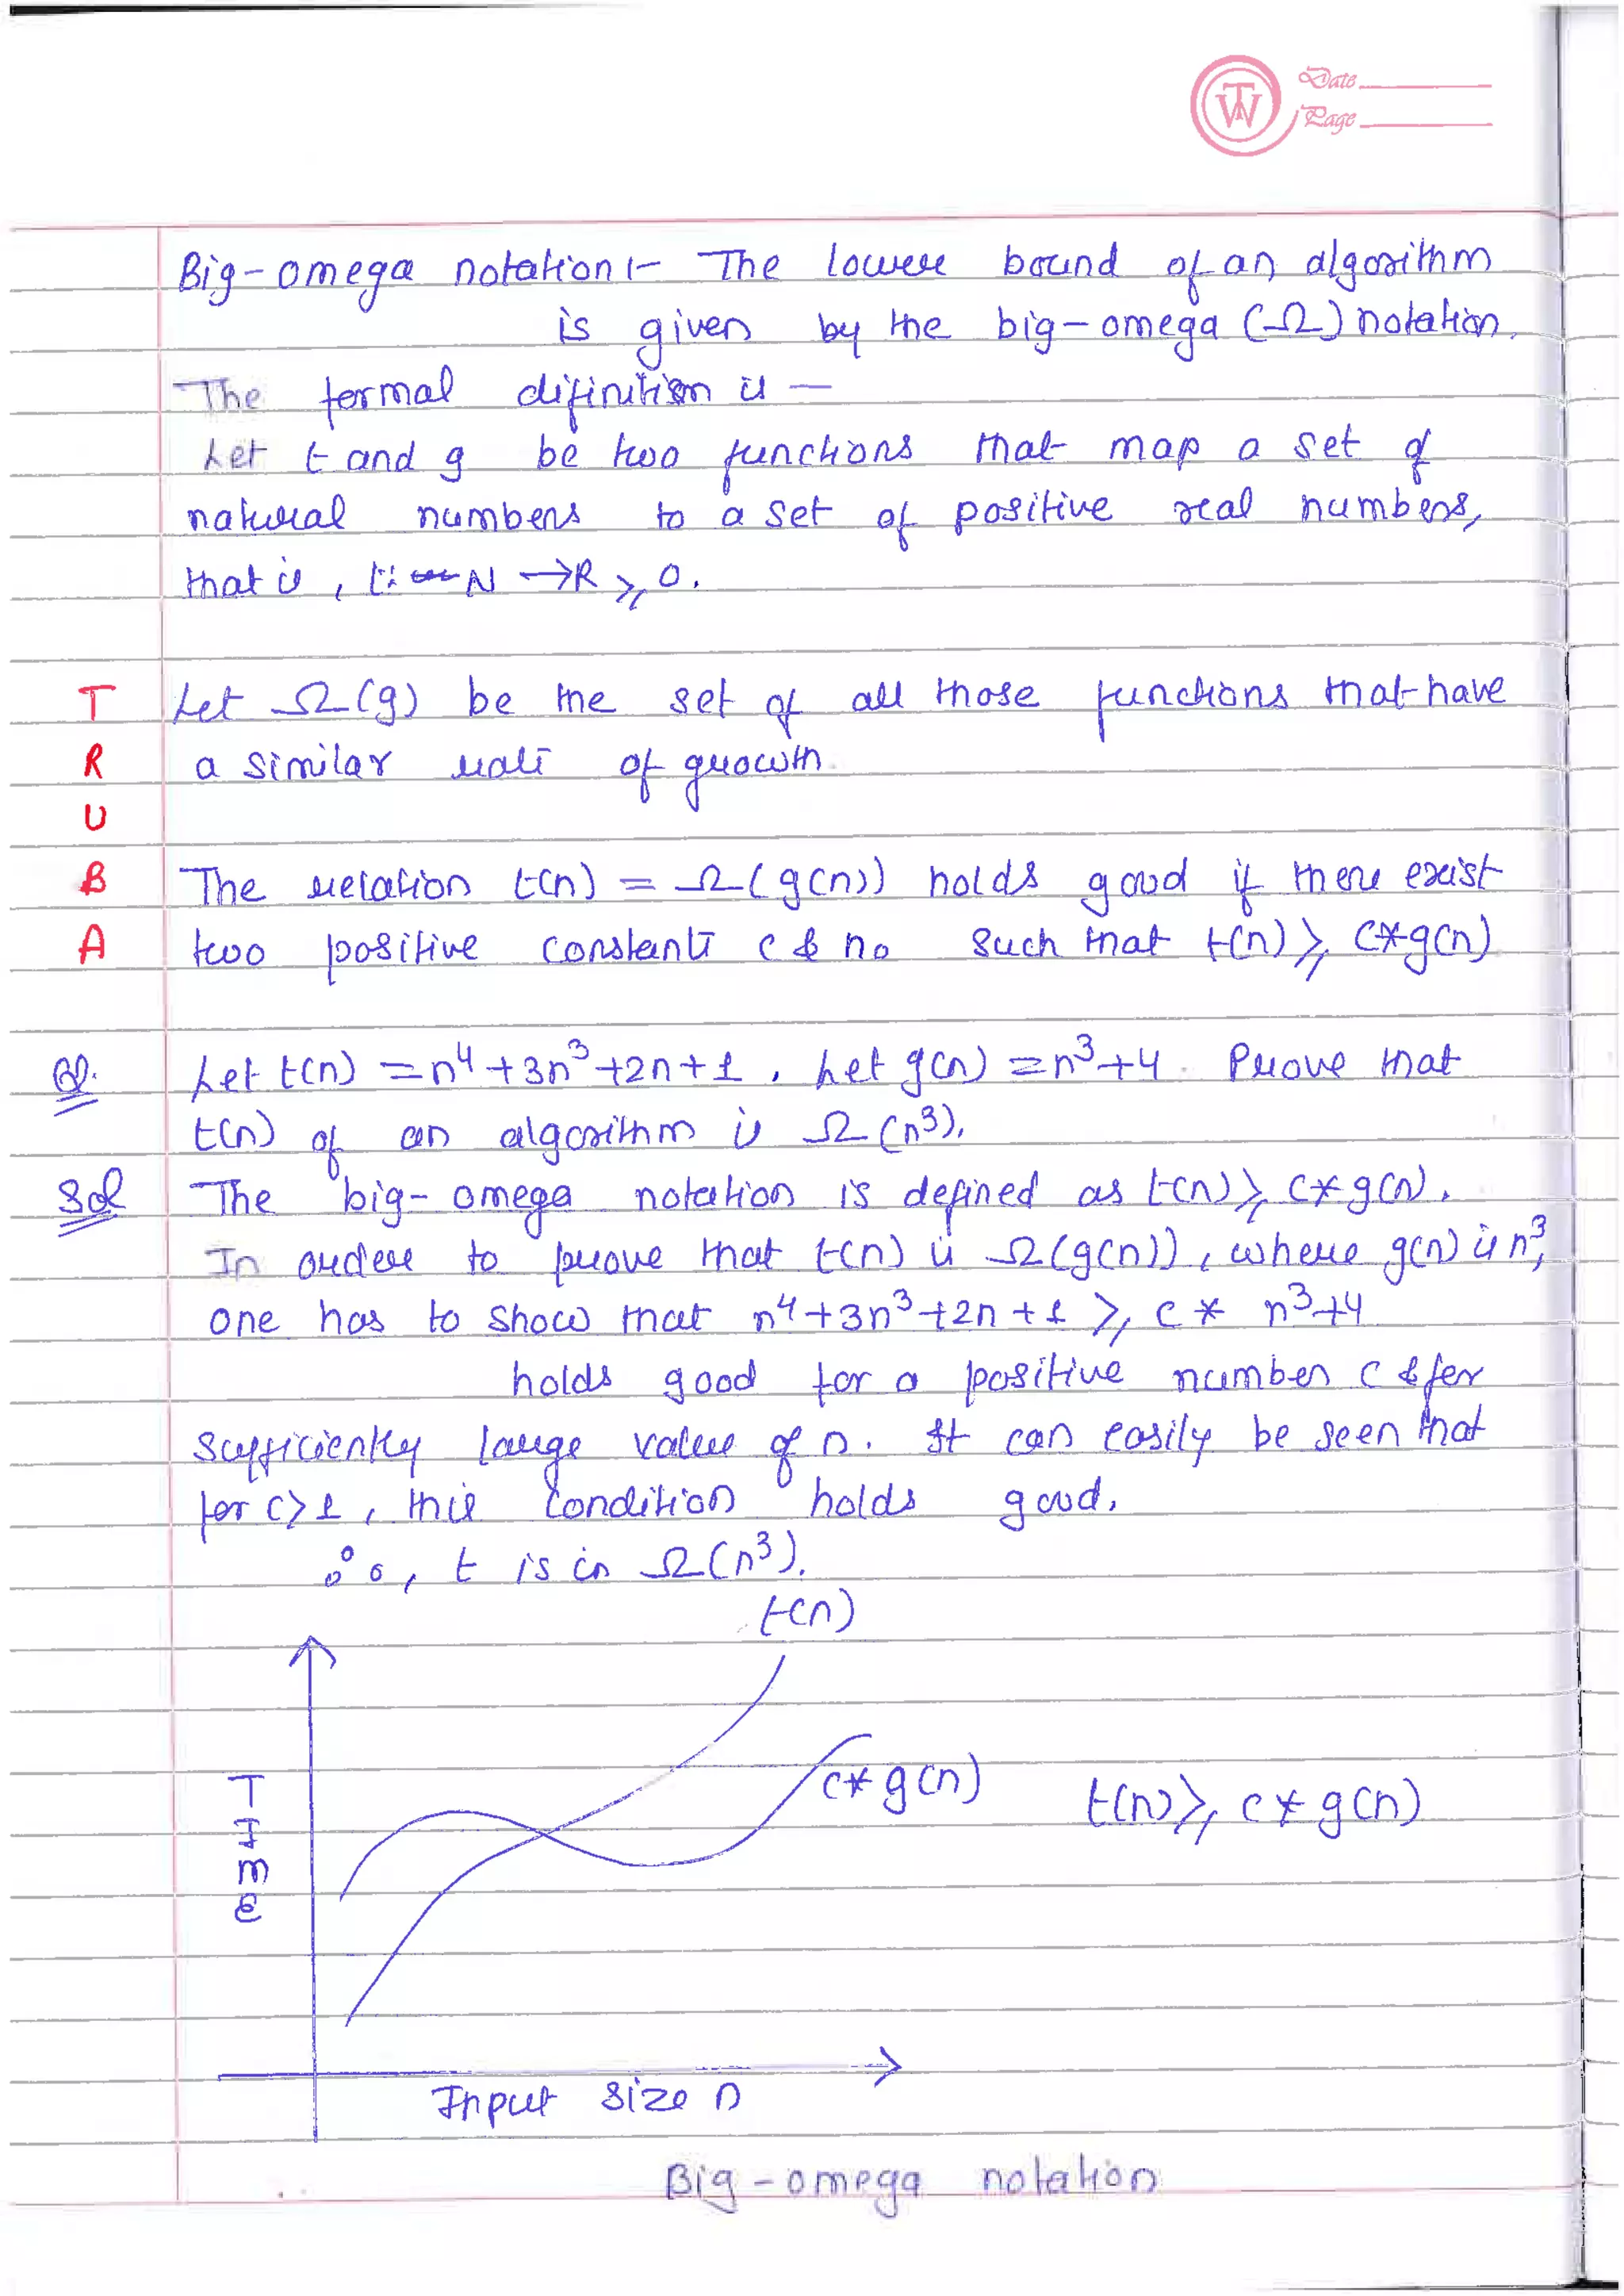 TW
Date
Page
Big-omega notation :- The lower bound of an algorithm
is given by the big-omega (Ω) notation.
The formal difinition is —
Let t and g be two functions that map a set of
natural numbers to a set of positive real numbers,
that is, t: N → R ≥ 0.
T Let Ω(g) be the set of all those functions that have
R a similar rate of growth.
U
B The relation t(n) = Ω(g(n)) holds good if there exist
A two positive constants c & n₀ such that t(n) ≥ c*g(n)
Q. Let t(n) = n⁴+3n³+2n+1, Let g(n) = n³+4. Prove that
t(n) of an algorithm is Ω(n³).
Sol The big-omega notation is defined as t(n) ≥ c*g(n).
In order to prove that t(n) is Ω(g(n)), where g(n) is n³,
one has to show that n⁴+3n³+2n+1 ≥ c * n³+4
holds good for a positive number c & for
sufficiently large value of n. It can easily be seen that
for c>1, this condition holds good.
∴, t is in Ω(n³).
t(n)
c*g(n)
t(n) ≥ c*g(n)
Time
Input size n
Big-omega notation